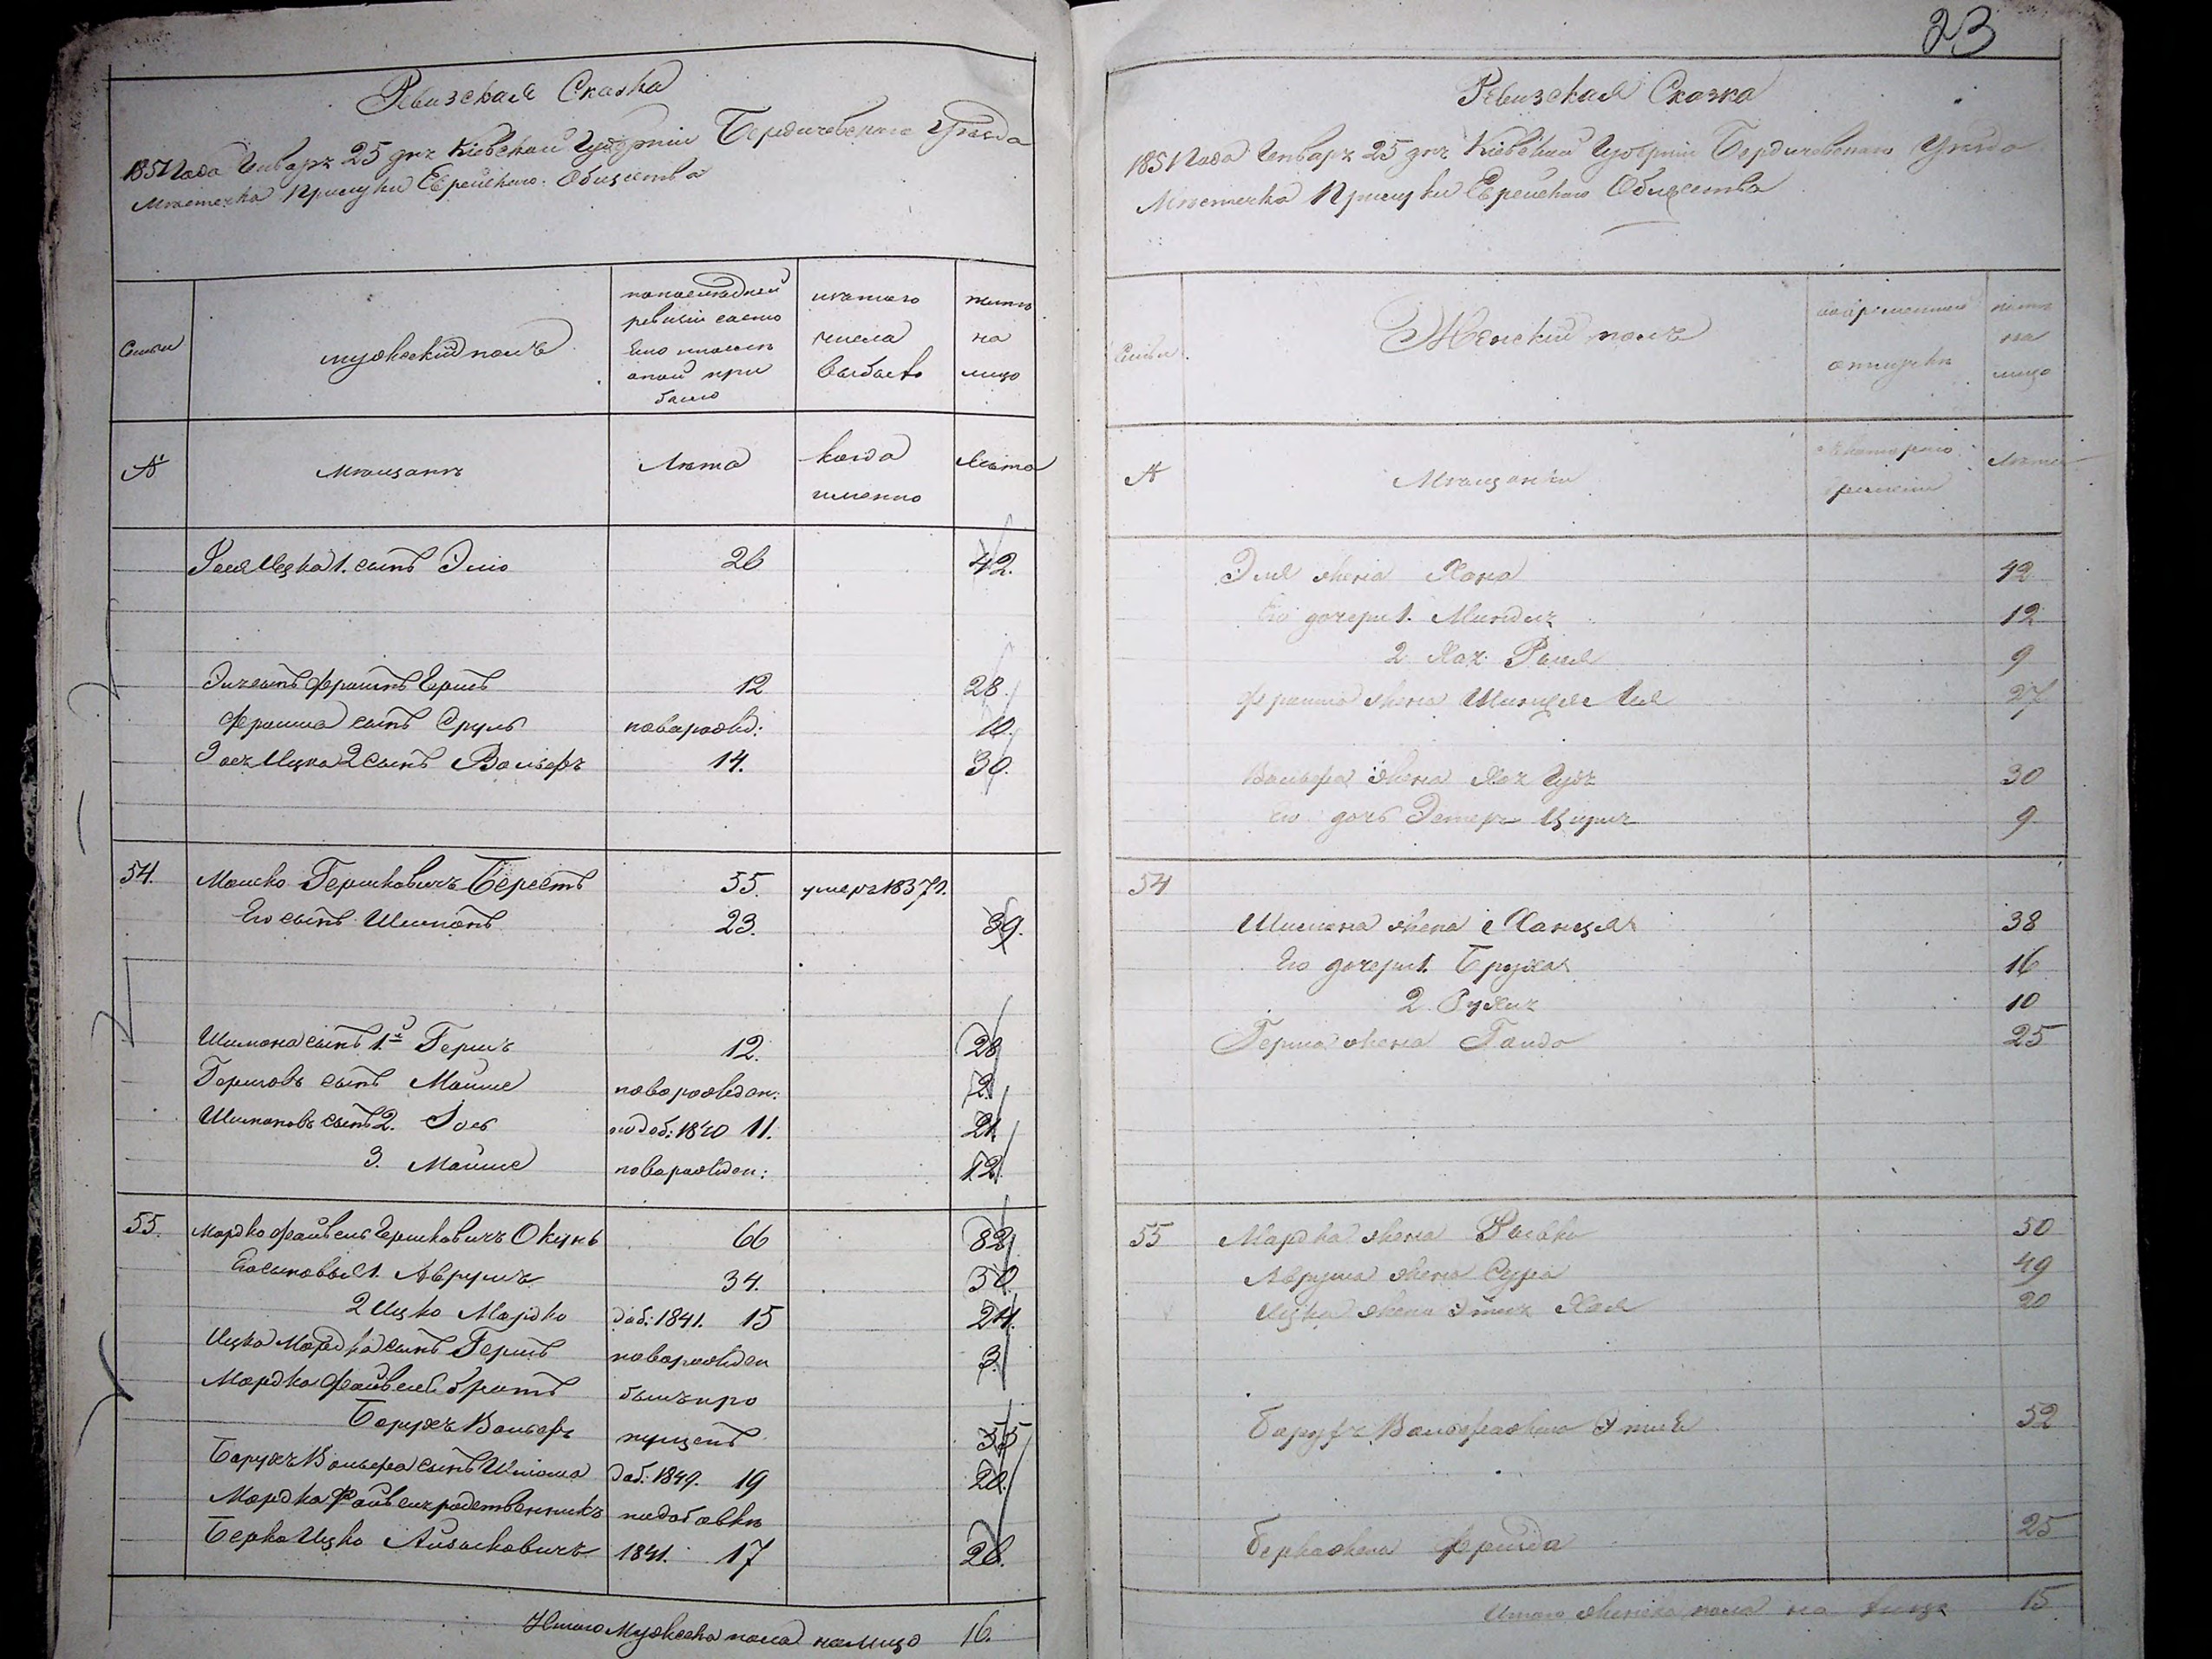 Ревизская Сказка
1851 Года Генваря 25 дня Кіевской Губерніи Бердичевскаго Уѣзда
Мѣстечка Прилуки Еврейскаго Общества
Семьи
мужескій полъ
по последней
ревизіи состо
яло и после
оной при
было
изъ того
числа
выбыло
ныне
на
лицо
№
Мѣщанъ
Лѣта
когда
именно
Лѣта
Ицка 1. сынъ Элио 26 42.
сынъ Фроимъ Гершъ 12 28.
Фроима сынъ Сруль новорожд: 10.
Ицка 2 сынъ Вольфъ 14. 30.
54. Мошко Гершковичъ Берестъ 55. умеръ 1837 г.
Его сынъ Шимонъ 23. 39.
Шимона сынъ 1й Гершъ 12. 28
Гершовъ сынъ Мойше новорожден: 2.
Шимоновъ сынъ 2. Іось доб: 1840 11. 21
3. Мойше новорожден: 12.
55. Мордко Файвель Гершковичъ Окунь 66 82.
Его сыновья 1. Аврумъ 34. 50.
2 Ицко Мордко доб: 1841. 15 24.
Ицка Мордка сынъ Гершъ новорожден 3.
Мордка Файвеля братъ былъ про
Борухъ Вольфъ пущенъ 55
Борухъ Вольфа сынъ Шлома доб: 19 20.
Мордка Файвеля родственникъ по добавкѣ
Берко Ицко Айзиковичъ 1841. 17 26.
Итого Мужеска пола на лицо 16.
23
Ревизская Сказка
1851 Года Генваря 25 дня Кіевской Губерніи Бердичевскаго Уѣзда
Мѣстечка Прилуки Еврейскаго Общества
Семьи
Женскій полъ
во временной
отлучкѣ
ныне
на
лицо
№
Мѣщанки
съ котораго
времени
Лѣта
Эля жена Хана 42
Его дочери 1. Миндля 12
2 Хая Рыся 9
Фроима жена 27
Вольфа жена Хая 30
Его дочь Эстеръ 9
54
Шимона жена Ханця 38
Его дочери 1. Бруха 16
2. Рухля 10
Герша жена Гольда 25
55 Мордка жена Рывка 50
Аврума жена Сура 49
Ицка жена Этля Хая 20
Борухъ Вольфа жена Этля 52
Берка жена Фрейда 25
Итого женска пола на лицо 15